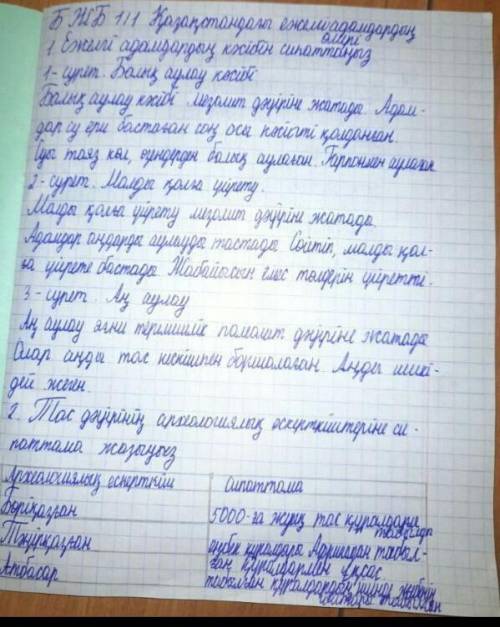 БЖБ 1/1 Қазақстандағы ежелгі адамдардың өмірі
1. Ежелгі адамдардың кәсібін сипаттаңыз
1-сурет. Балық аулау кәсібі
Балық аулау кәсібі мезолит дәуіріне жатады. Адам-
дар су ери бастаған соң осы кәсіпті қолданған.
Олар таяз көл, өзендерден балық аулаған. Гарпонмен аулаған
2-сурет. Малды қолға үйрету.
Малды қолға үйрету мезолит дәуіріне жатады.
Адамдар аңдарды аулауды тастады. Сөйтіп, малды қол-
ға үйрете бастады. Жабайысын емес төлдерін үйретті.
3-сурет. Аң аулау
Аң аулау яғни термшілік палолит дәуіріне жатады
Олар аңды тас кескішпен боршалаған. Аңды шикі-
дей жеген.
2. Тас дәуірінің археологиялық ескерткіштеріне си-
паттама жазыңыз
Археологиялық ескерткіш сипаттама
Бөріқазған 5000-ға жуық тас құралдары табылды
Тәңірқазған еңбек құралдары Африкадан табыл-
ған құралдармен ұқсас
Атбасар табылған құралдардың ішінде жебенің ұштары табылған